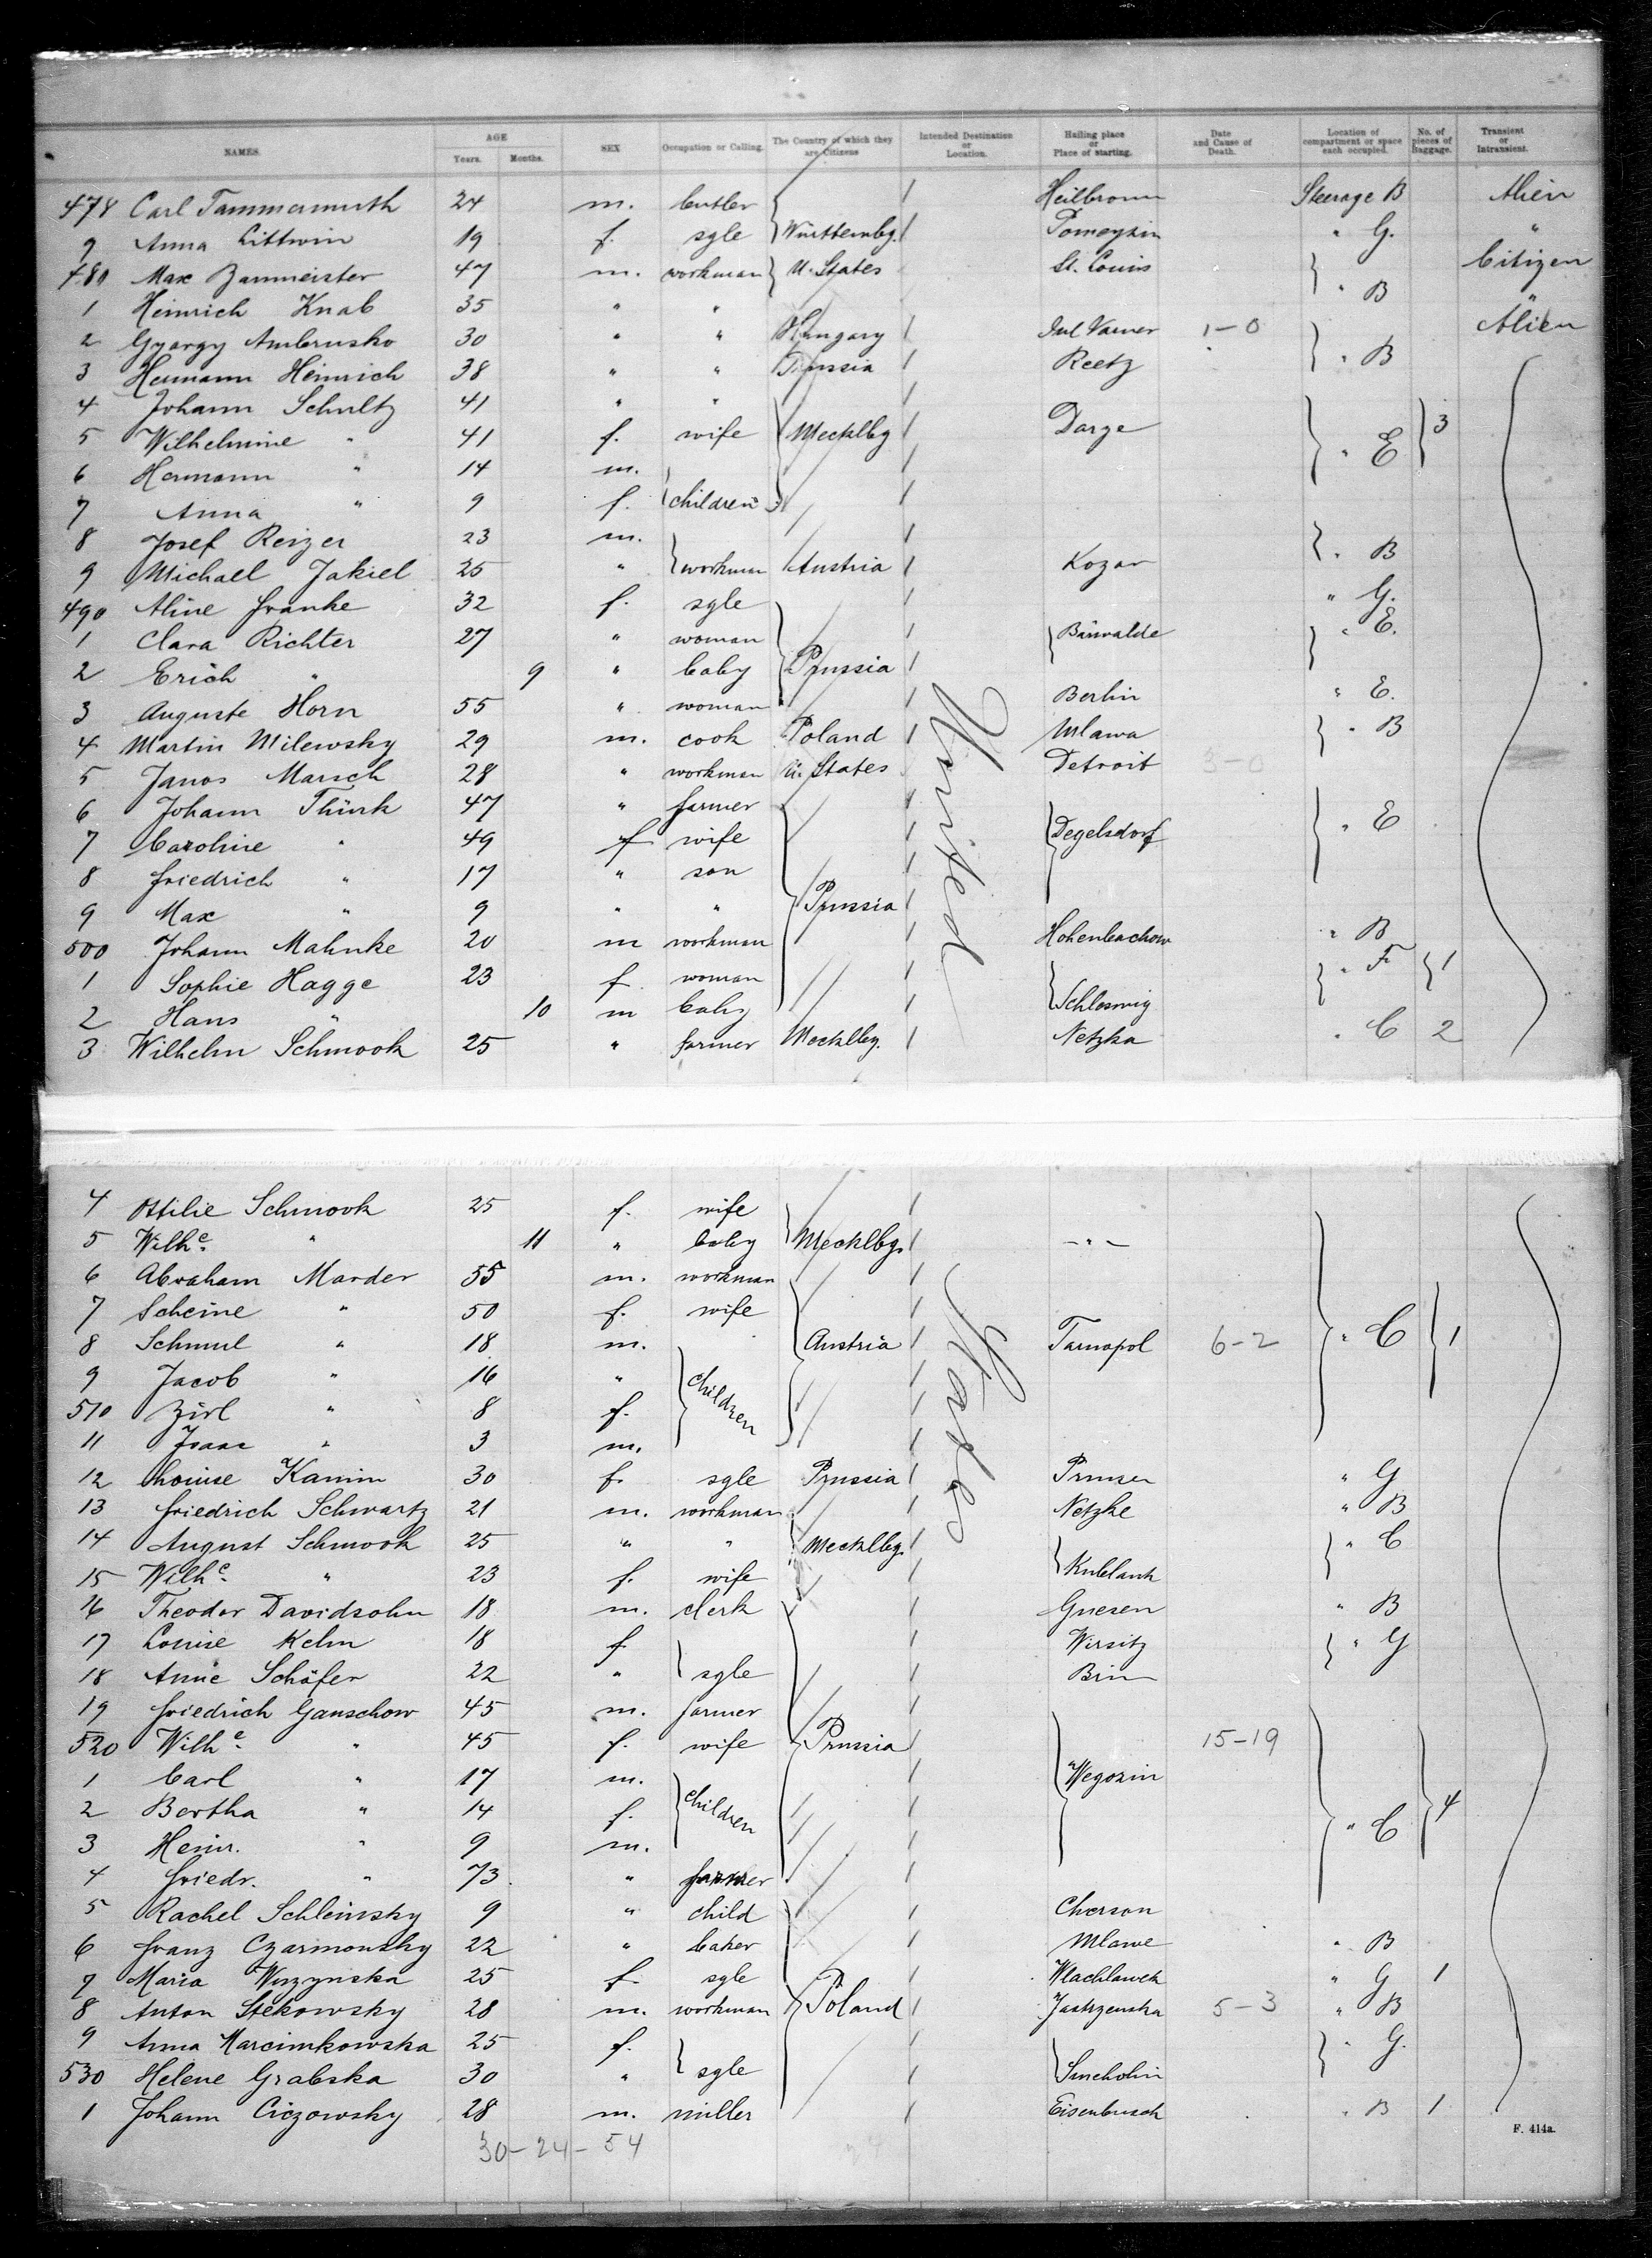 NAMES. AGE Years. Months. SEX Occupation or Calling. The Country of which they are Citizens Intended Destination or Location. Hailing place or Place of starting. Date and Cause of Death. Location of compartment or space each occupied. No. of pieces of Baggage. Transient or Intransient.
478 Carl Tammermuth 24 m. butler Heilbronn Steerage B Alien
9 Anna Littwin 19 f. sgle Württembg. " G. "
480 Max Banmeister 47 m. workman U. States St. Louis Citizen
1 Heinrich Knab 35 " " " B "
2 Gyorgy Ambrusko 30 " " Hungary 1-0 Alien
3 Hermann Heinrich 38 " " Prussia Reetz " B
4 Johann Schultz 41 " "
5 Wilhelmine " 41 f. wife Mecklbg Darge " E 3
6 Hermann " 14 m.
7 Anna " 9 f. children
8 Josef Reizer 23 m.
9 Michael Jakiel 25 " workman Austria Kozar " B
490 Aline Franke 32 f. sgle " G.
1 Clara Richter 27 " woman Bärwalde " E.
2 Erich " 9 " baby Prussia
3 Auguste Horn 55 " woman Berlin " E.
4 Martin Milewsky 29 m. cook Poland Mlawa " B
5 Janos Marsch 28 " workman U. States Detroit 3-0
6 Johann Thürk 47 " farmer
7 Caroline " 49 f wife Degelsdorf " E
8 Friedrich " 17 " son
9 Max " 9 " " Prussia
500 Johann Mahnke 20 m workman " B
1 Sophie Hagge 23 f woman " F 1
2 Hans " 10 m baby Schleswig
3 Wilhelm Schmook 25 " farmer Mecklbg. Netzka " C 2
United
4 Ottilie Schmook 25 f. wife
5 Wilhe. " 11 " baby Mecklbg. - " -
6 Abraham Marder 55 m. workman
7 Scheine " 50 f. wife
8 Schmul " 18 m. Austria Tarnopol 6-2 " C 1
9 Jacob " 16 " children
510 Zirl " 8 f.
11 Isaac " 3 m.
12 Louise Kamin 30 f. sgle Prussia " G
13 Friedrich Schwartz 21 m. workman Netzke " B
14 August Schmook 25 " " Mecklbg. " C
15 Wilhe. " 23 f. wife Kublank
16 Theodor Davidsohn 18 m. clerk Gnesen " B
17 Louise Kelm 18 f Wirsitz " G
18 Anne Schäfer 22 " sgle
19 Friedrich Ganschow 45 m. farmer
520 Wilhe. " 45 f. wife Prussia 15-19
1 Carl " 17 m. Wegozin
2 Bertha " 14 f. children " C 4
3 Heinr. " 9 m.
4 Friedr. " 73 " farmer
5 Rachel Schleinsky 9 " child Cherson
6 Franz Czarmonsky 22 " baker Mlawe " B
7 Maria Wyzynska 25 f sgle Wlachlawek " G 1
8 Anton Stekowsky 28 m. workman Poland 5-3 " B
9 Anna Marcimkowska 25 f. " G.
530 Helene Grabska 30 " sgle
1 Johann Ciczowsky 28 m. miller Eisenbusch " B 1
States
30-24-54
F. 414a.